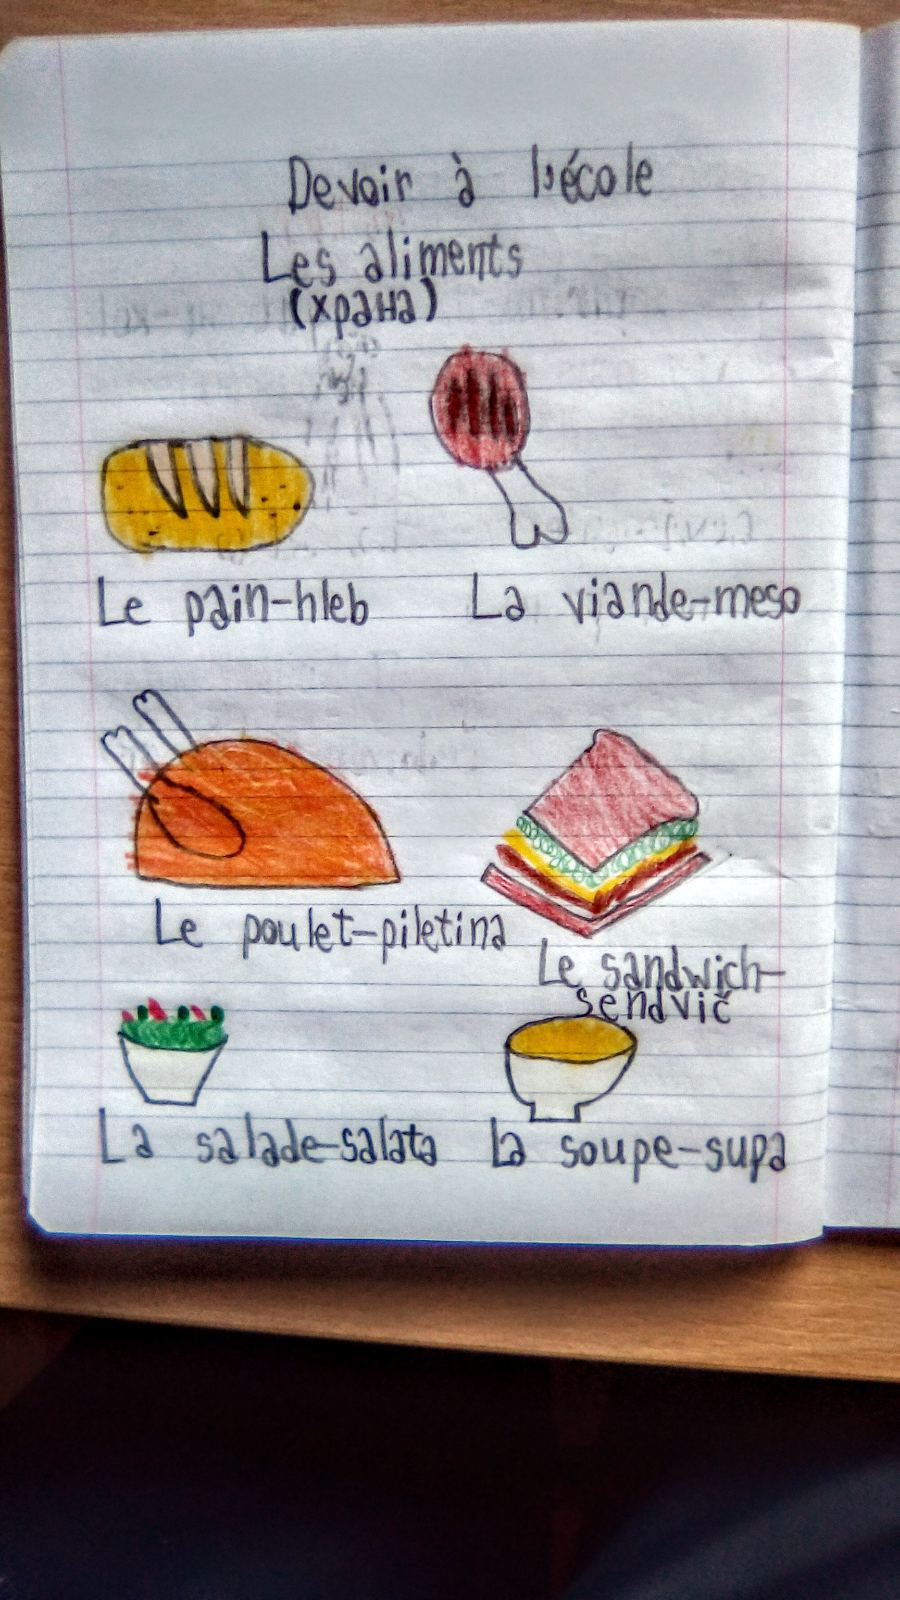 Devoir à l'école
Les aliments
(храна)
Le pain-hleb
La viande-meso
Le poulet-piletina
Le sandwich-
sendvič
La salade-salata
La soupe-supa